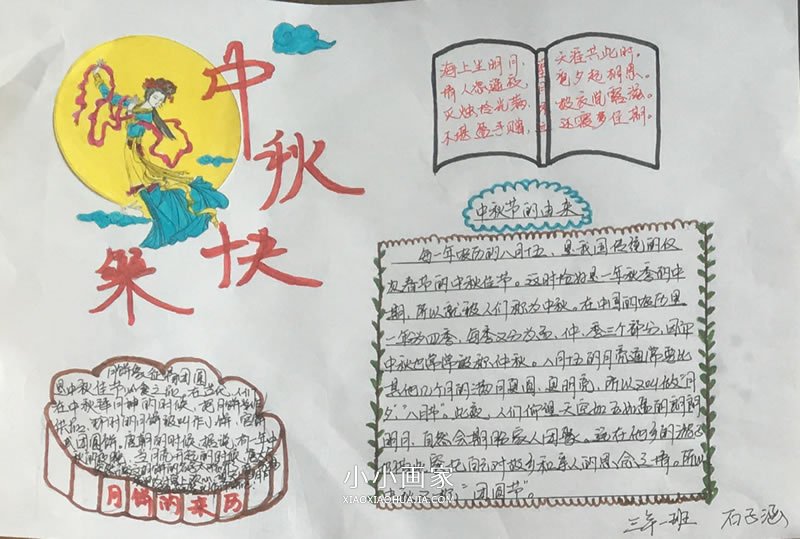 中秋快乐
海上生明月，
天涯共此时。
情人怨遥夜，
竟夕起相思。
灭烛怜光满，
披衣觉露滋。
不堪盈手赠，
还寝梦佳期。
中秋节的由来
每一年农历的八月十五，是我国传统的仅
次春节的中秋佳节。这时恰好是一年秋季的中
期，所以就被人们称为中秋。在中国的农历里
一年分为四季，每季又分为孟、仲、季三个部分，因而
中秋也常常被称仲秋。八月十五的月亮通常要比
其他几个月的满月更圆，更明亮，所以又叫做"月
夕""八月半"。此夜，人们仰望天空如玉如盘的朗朗
明月，自然会期盼家人团聚。远在他乡的游子
对故乡和亲人的思念之情。所以
"团圆节"。
月饼象征着团圆
是中秋佳节必食之品。在古代，人们
在中秋拜月神的时候，把月饼当作
供品。那时的月饼被叫作小饼、宫饼
或团圆饼。唐朝的时候，据说，有一年中
月饼的来历
小小画家
XIAOXIAOHUAJIA.COM
三年一班 石子涵